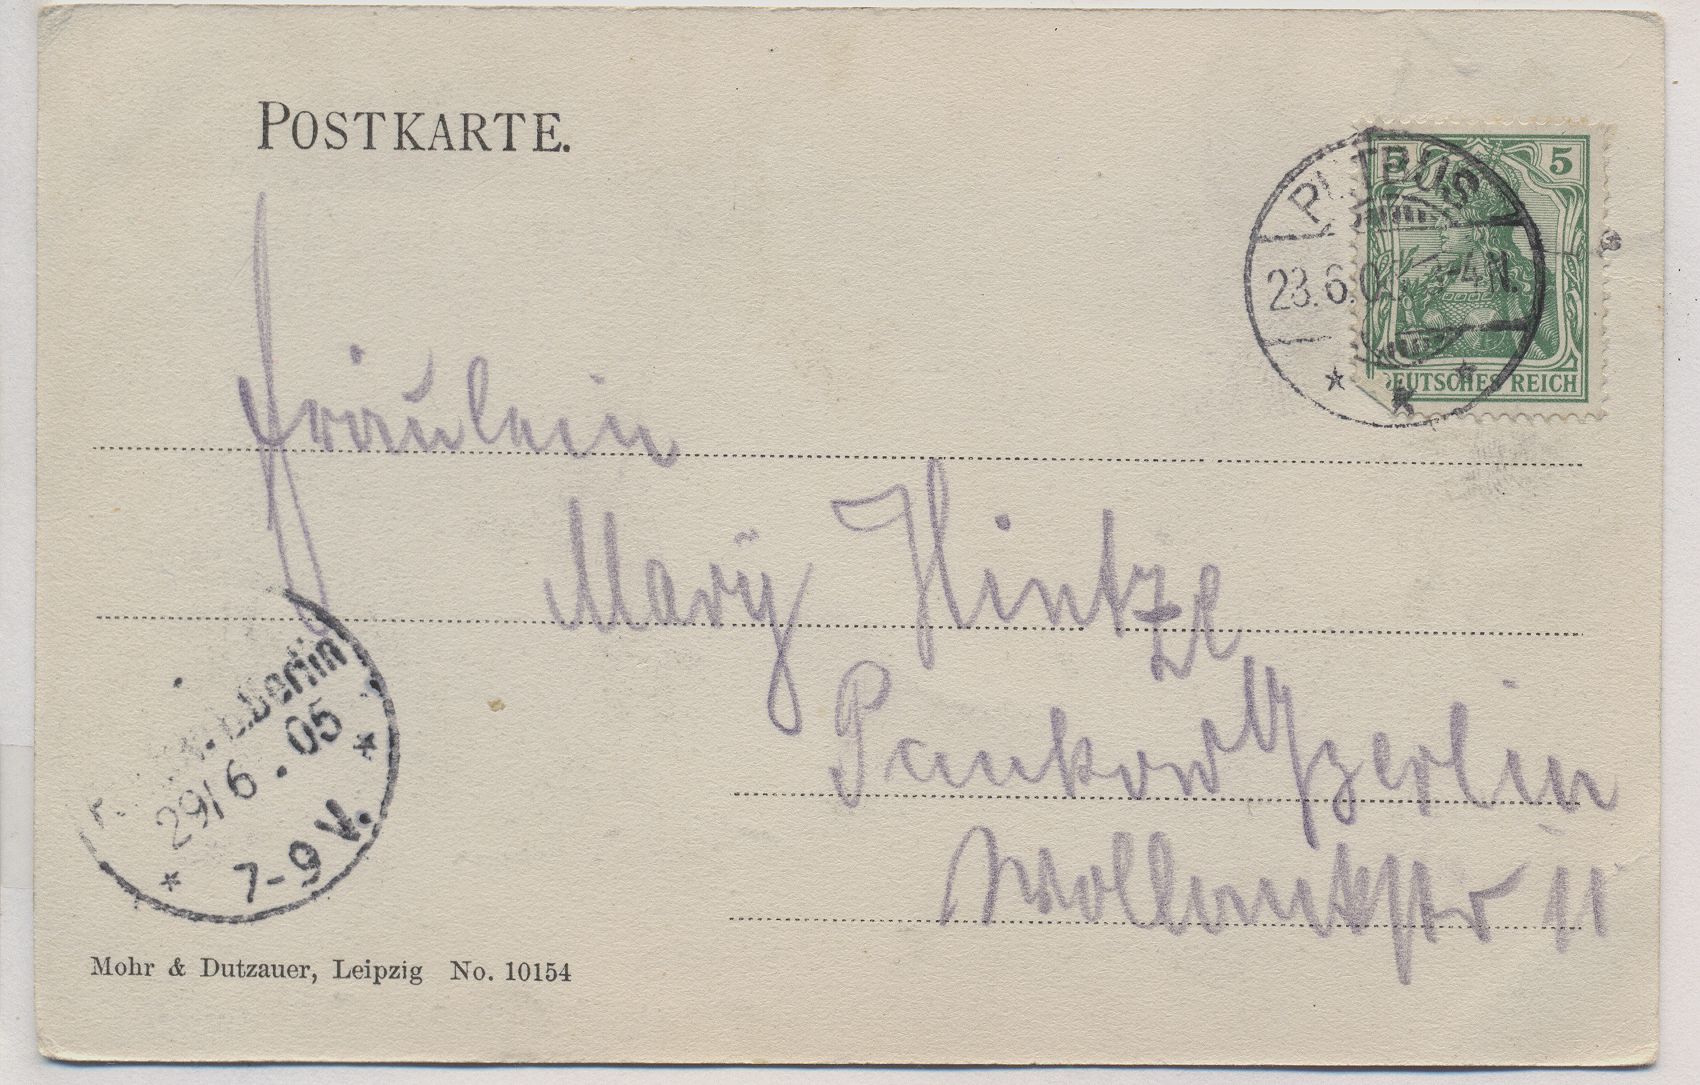 POSTKARTE.
5 5
PUTBUS
23.6.05 3-4N.
* k *
DEUTSCHES REICH
Fräulein
Mary Hintze
Pankow b/Berlin
Wollankstr 11
b. Berlin
29/6.05
* 7-9 V. *
Mohr & Dutzauer, Leipzig No. 10154